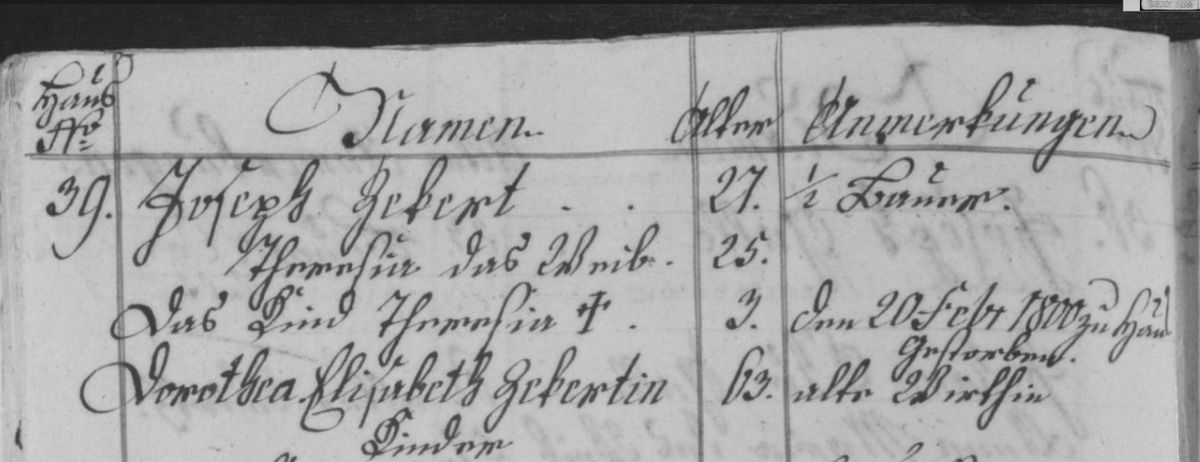 Haus Nro Namen. Alter Anmerkungen.
39. Joseph Zekert . . 27. 1/2 Bauer.
Theresia das Weib. 25.
Das Kind Theresia † . 3. den 20 Febr 1800 zu Haus
Gestorben.
Dorothea Elisabeth Zekertin 63. alte Wirthin
Kinder